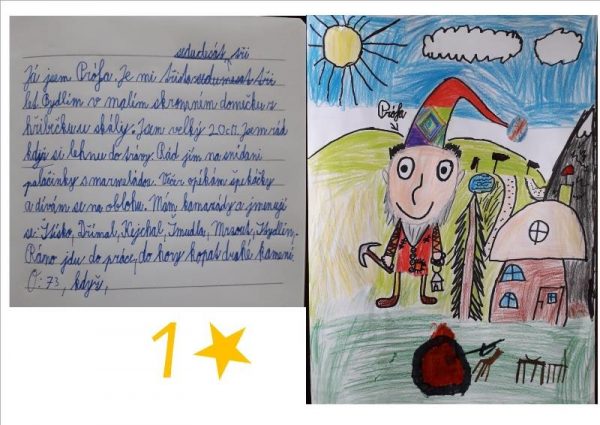 sedmdesát tři
Já jsem Prófa. Je mi třista sedumesat tři
let Bydlím v malím skromném domečku z
hřibečku u skály. Jsem velký 20cm. Jsem rád
když si lehnu do trávy. Rád jím na snídani
palačinky s marmeládou. Večer opíkám špekáčky
a dívám se na oblohu. Mám kamarády a jmenují
se: Kejchal, Šmudla, Stydlín.
Ráno jdu do práce, do hory kopat drahé kamení.
O: 73, když,
Prófa
1